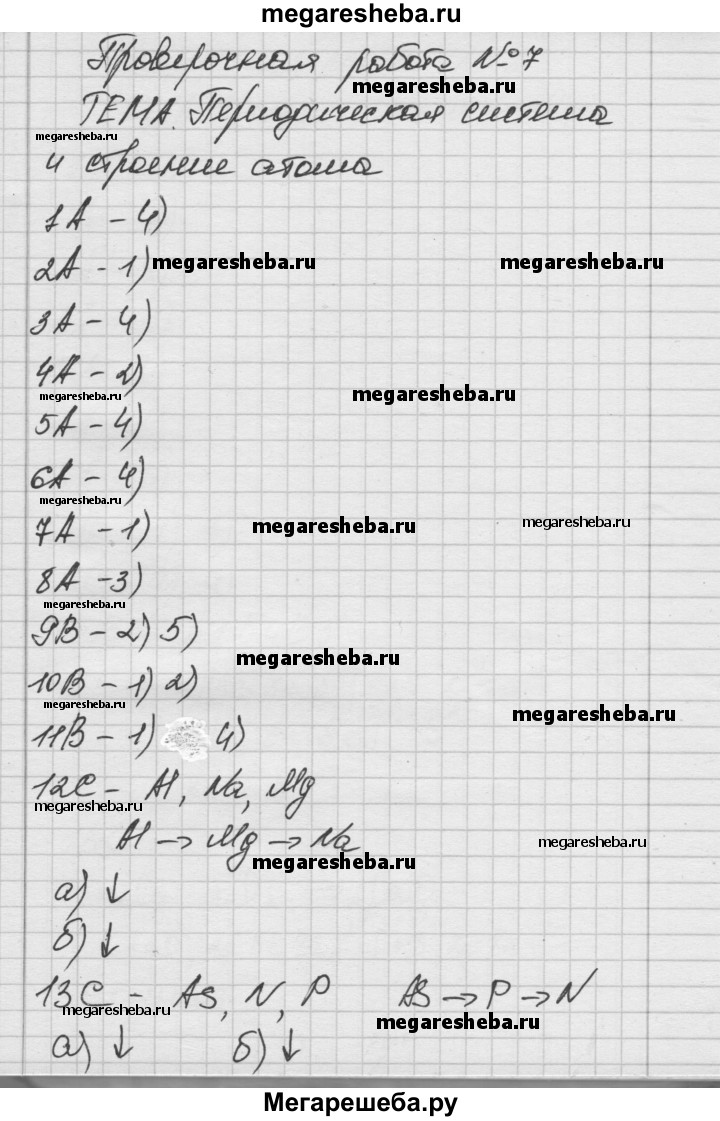 megaresheba.ru
Проверочная работа №7
megaresheba.ru
ТЕМА. Периодическая система
megaresheba.ru
и строение атома
1А - 4)
2А - 1) megaresheba.ru megaresheba.ru
3А - 4)
4А - 2)
megaresheba.ru megaresheba.ru
5А - 4)
6А - 4)
megaresheba.ru
7А - 1) megaresheba.ru megaresheba.ru
8А - 3)
megaresheba.ru
9В - 2) 5)
megaresheba.ru
10В - 1) 2)
megaresheba.ru megaresheba.ru
11В - 1) 4)
12С - Al, Na, Mg
megaresheba.ru
Al → Mg → Na megaresheba.ru
megaresheba.ru
а) ↓
б) ↓
13С - As, N, P As → P → N
megaresheba.ru megaresheba.ru
а) ↓ б) ↓
Мегарешеба.ру